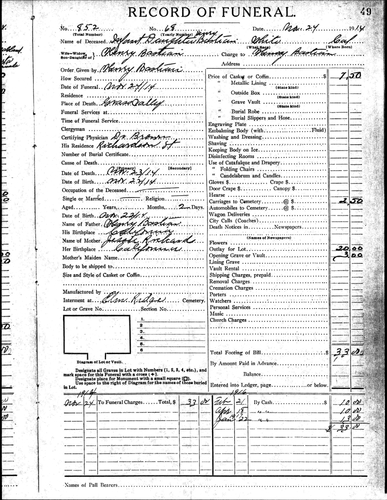 RECORD OF FUNERAL.
49
No. 852 No. 68 Date, Nov. 24 1914
(Total Number) (Yearly Number)
Name of Deceased, Infant Daughter Bastian White Cal
(What Race) (Where Born)
Henry Bastian Charge to Henry Bastian
Address
Order Given by Henry Bastian
How Secured
Date of Funeral Nov 24/14
Residence
Place of Death, Grass Valley
Funeral Services at
Time of Funeral Service
Clergyman
Certifying Physician Dr. Brown
His Residence Richardson St
Number of Burial Certificate
Cause of Death
(Secondary)
Date of Death, Nov. 23/14
Date of Birth, Nov. 22/14
Occupation of the Deceased
Single or Married Religion
Aged, Years, Months, 2 Days
Date of Birth, Nov. 22/14
Name of Father, Henry Bastian
His Birthplace California
Name of Mother
His Birthplace California
Mother's Maiden Name
Body to be shipped to
Size and Style of Casket or Coffin
Manufactured by
Interment at Elm Ridge Cemetery.
Lot or Grave No. Section No.
1
2
3
4
5
6
7
8
Diagram of Lot or Vault.
Designate all Graves in Lot with Numbers (1, 2, 3, 4, etc.), and
mark space for this Funeral with a cross (+).
Designate place for Monument with a small square
Use space to the right of Diagram for the names of those buried
in Lot.
Price of Casket or Coffin $ 7.50
" Metallic Lining
(State kind)
Outside Box
(State kind)
" Grave Vault
(State kind)
" Burial Robe
(State kind)
" Burial Slippers and Hose
Engraving Plate
Embalming Body (with Fluid)
Washing and Dressing
Shaving
Keeping Body on Ice
Disinfecting Rooms
Use of Catafalque and Drapery
" Folding Chairs
" Candelabrum and Candles
Gloves $ Crepe $
Door Crepe $ Canopy $
Hearse
Carriages to Cemetery @ $ 2.50
Automobiles to Cemetery @ $
Wagon Deliveries
City Calls (Coaches)
Death Notices in Newspapers
(Names of Newspapers)
Flowers
Outlay for Lot 20.00
Opening Grave or Vault 3.00
Lining Grave
Vault Rental
Shipping Charges, prepaid
Removal Charges
Cremation Charges
Porters
Watchers
Personal Services
Music
Church Charges
Total Footing of Bill $ 33 00
By Amount Paid in Advance
Balance
Entered into Ledger, page or below.
1914
Nov. 24 To Funeral Charges, Total, $ 33 00
Feb 21 By Cash $ 10 00
Apr 18 10 00
13 00
$ 33 00
Names of Pall Bearers